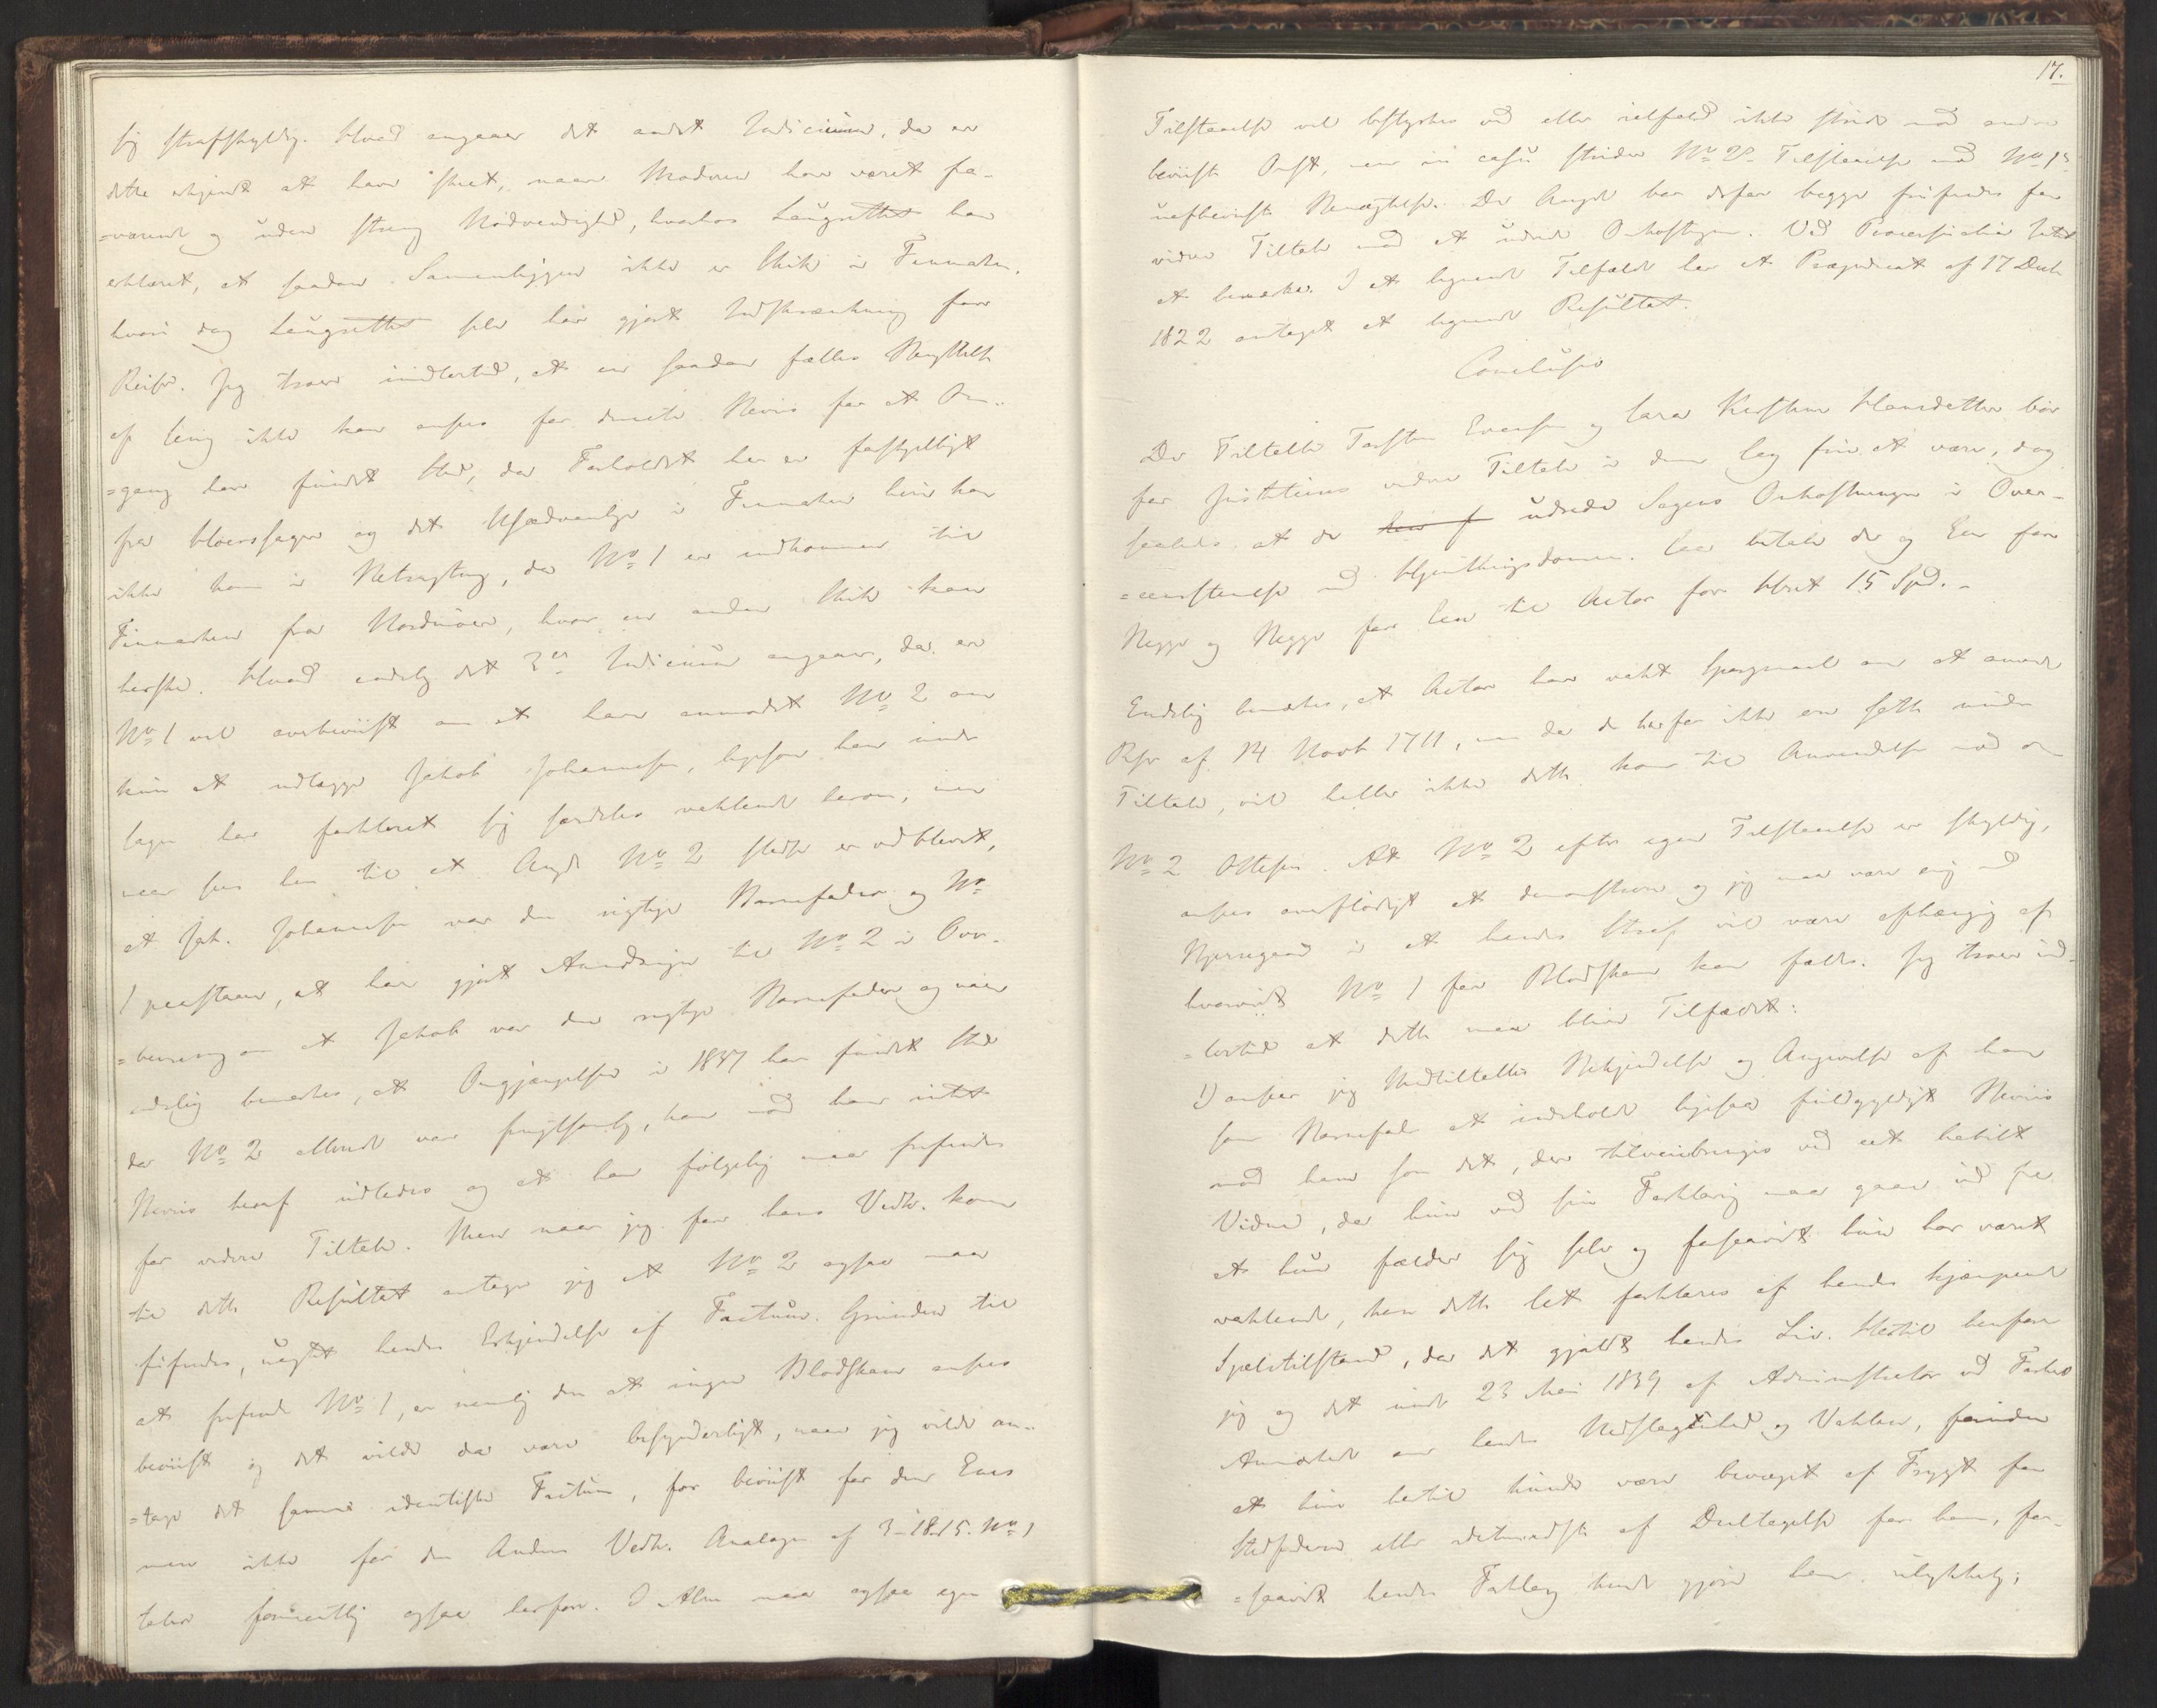 sig strafskyldig. Hvad angaaer det andet Indicium, da er
dette erkjendt at have skeet, naar Moderen har været fra-
=værende og uden streng Nødvendighed, hvorhos Laugrettet har
erklæret, at saadan Sammenliggen ikke er Skik i Finmarken,
hvori dog Laugrettet selv har gjort Indskrænkning for
Reiser. Jeg troer imidlertid, at en saadan fælles Benyttelse
af Seng ikke kan ansees for directe Beviis for at Om-
=gang har fundet Sted, da Forholdet her er forskjelligt
fra Hoerssager og det Usædvanlige i Finmarken herved kan
ikke komme i Betragtning, da No 1 er indkommen til
Finmarken fra Nordmøer, hvor en anden Skik kan
herske. Hvad endelig det 3die Indicium angaaer, da er
No 1 vel overbeviist om at have anmodet No 2 om
kun at udlægge Jakob Johannesen, ligesom han under
Sagen har forklaret sig særdeles vaklende herom, men
naar sees hen til at Angl. No 2 stedse er vedblevet,
at Jak. Johannesen var den rigtige Barnefader og No
1 paastaaer, at have gjort Anmodninger til No 2 i Over-
=beviisning om at Jakob var den rigtige Barnefader og naar
endelig bemærkes, at Omgjængelsen i 1837 har fundet Sted
da No 2 allerede var frugtsommelig, kan mod ham intet
Beviis heraf udledes og at han følgelig maa frifindes
for videre Tiltale. Men naar jeg for hans Vedk. kommer
til dette Resultat antager jeg at No 2 ogsaa maa
frifindes, uagtet hendes Erkjendelse af Factum. Grunden til
at frifinde No 1, er nemlig den at ingen Blodskam ansees
beviist og det vilde da være besynderligt, naar jeg vilde an-
=tage det samme identiske Factum, for beviist for den Enes
men ikke for den Andens Vedk. Analogien af 3-18-15. No 1
taler formeentlig ogsaa herfor. I Alm. maa ogsaa egen
17.
Tilstaaelse vel bestyrkes ved eller ialfald ikke stride mod andre
beviiste Omst., men in casu strider No 2s Tilstaaelse mod No 1s
uafbeviiste Benægtelse. De Angl. bør derfor begge frifindes for
videre Tiltale mod at udrede Omkostningerne. Ved Proceduren Intet
at bemærke. I et lignende Tilfælde har et Præjudicat af 17 Decbr
1822 antaget et lignende Resultat.
Conclusio
De Tiltalte Torsten Evensen og Sara Kirstine Hansdatter bør
for Justitiens videre Tiltale i denne Sag frie at være, dog
saaledes, at de udrede Sagens Omkostninger i Over-
=eensstemmelse med Hjemtingsdommen. Saa betale de og Een for
Begge og Begge for Een til Actor for Høiest. 15 Spd.-
Endelig bemærkes, at Actor har vakt Spørgsmaal om at anvende
Rescr. af 14 Novb 1711, men da de herfor ikke ere satte under
Tiltale, vil heller ikke dette komme til Anvendelse mod dem
No 2 Ottesen. At No 2 efter egen Tilstaaelse er skyldig,
ansees overflødigt at demonstrere og jeg maa være enig med
Bjerregaard i at hendes Straf vil være afhængig af
hvorvidt No 1 for Blodskam kan fældes. Jeg troer imid-
=lertid at dette maa blive Tilfældet:
1) anseer jeg Medtiltaltes Bekjendelse og Angivelse af ham
som Barnefader at indeholde ligesaa fuldgyldigt Beviis
mod ham som det, der tilveiebringes ved eet habilt
Vidne, da hun ved sin Forklaring maa gaae ud fra
at hun fælder sig selv og forsaavidt hun har været
vaklende, kan dette let forklares af hendes kjæmpende
Sjælstilstand, da det gjaldt hendes Liv. Hertil henfører
jeg og det under 23 Mai 1839 af Administrator ved Forhør
Anmærkede om hendes Nedslagenhed og Vaklen, forinden
at hun hertil kunde være bevæget af Frygt for
Stedfaderen eller idetmindste af Deeltagelse for ham, for-
=saavidt hendes Forklaring kunde gjøre ham ulykkelig;